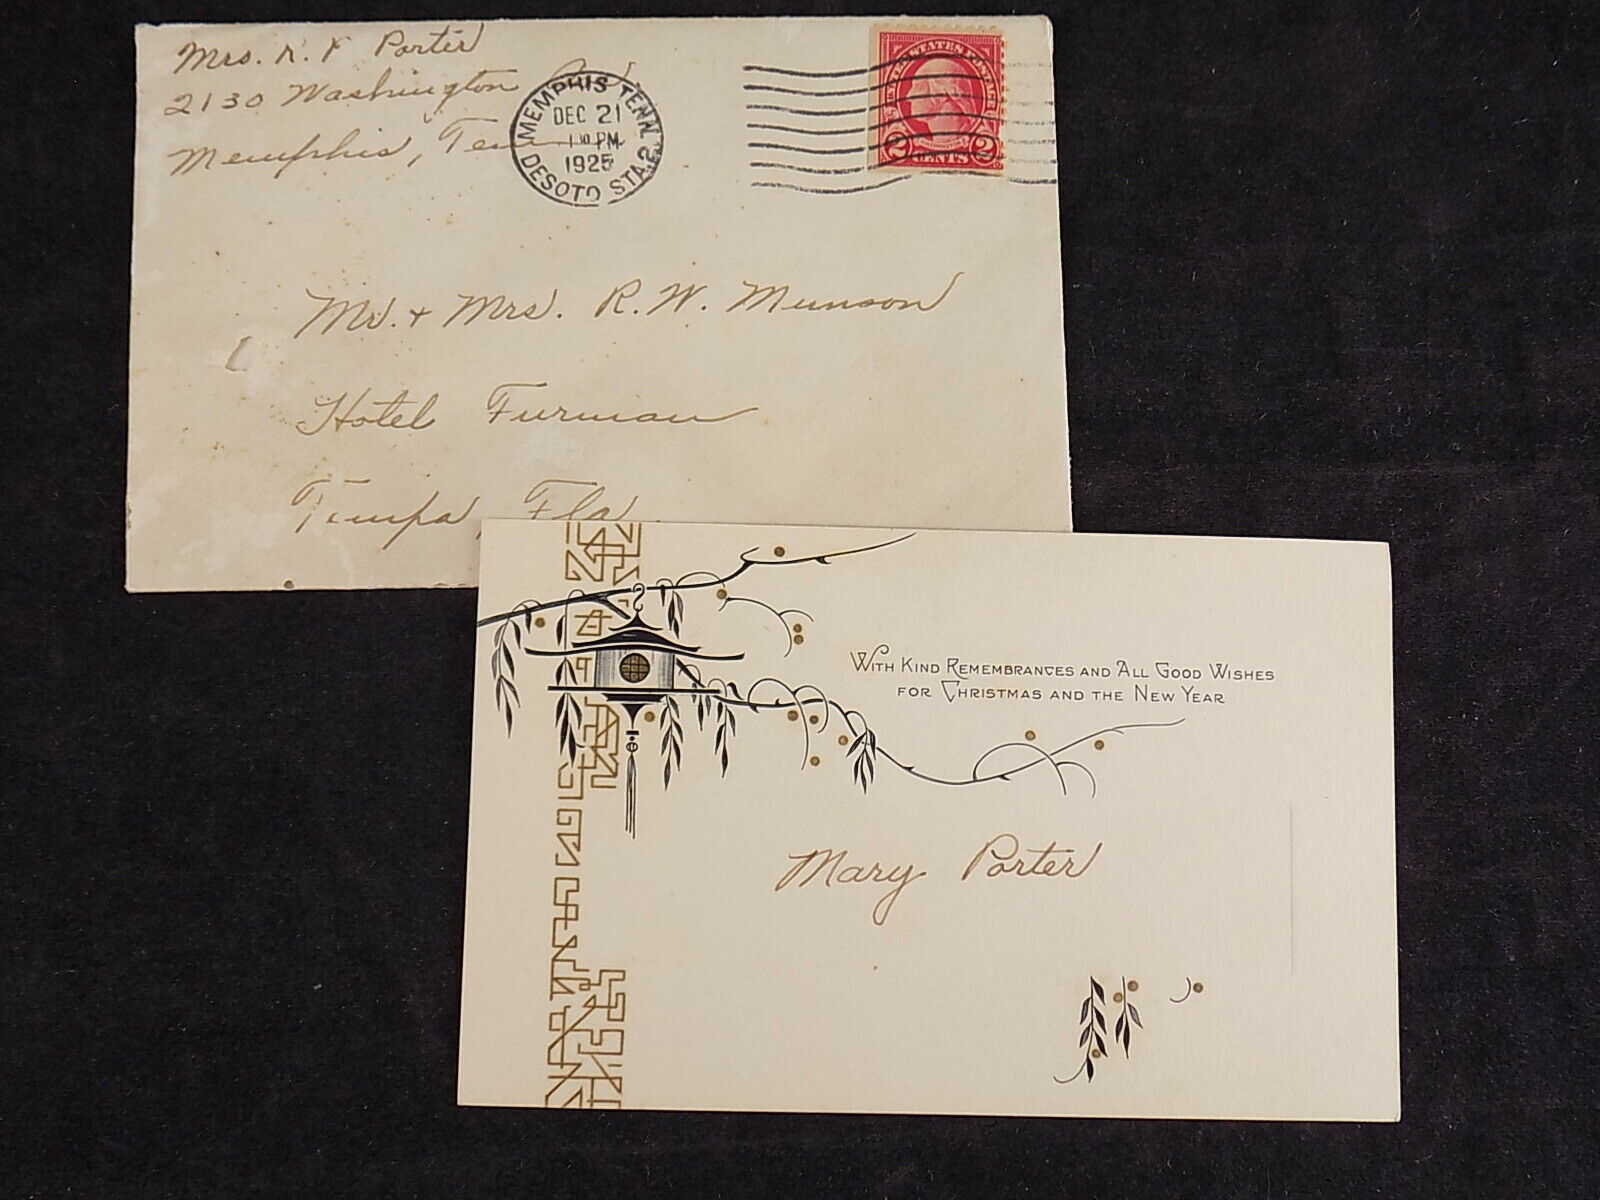 Mrs. R. F Porter
2130 Washington
Memphis, Tenn
MEMPHIS TENN.
DEC 21
1 30 PM
1925
DESOTO STA. 2
UNITED STATES POSTAGE
WASHINGTON
2 CENTS 2
Mr. & Mrs. R. W. Munson
Hotel Furman
Tampa, Fla.
WITH KIND REMEMBRANCES AND ALL GOOD WISHES
FOR CHRISTMAS AND THE NEW YEAR
Mary Porter